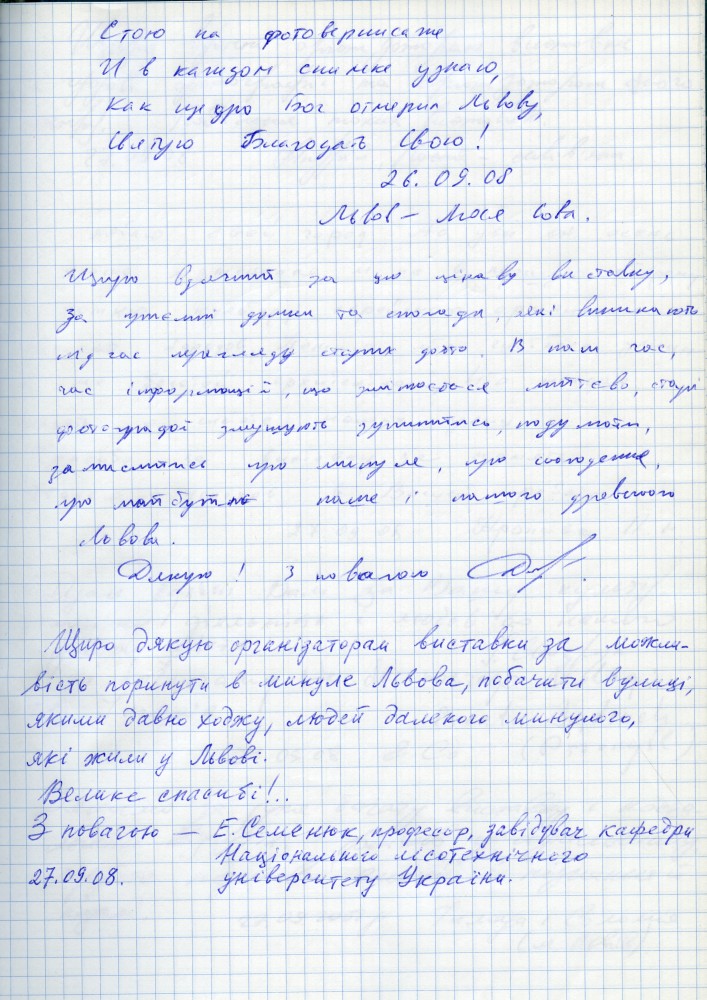 Стою на фотовернисаже
И в каждом снимке узнаю,
Как щедро Бог отмерил Львову,
Святую Благодать Свою!
26.09.08
Львов – Люся Сова.
Щиро вдячний за цю цікаву виставку,
за приємні думки та спогади, які виникають
під час перегляду старих фото. В наш час,
час інформації, що змінюється миттєво, старі
фотографії змушують зупинитись, подумати,
замислитись про минуле, про сьогодення,
про майбутнє наше і нашого древнього
Львова.
Дякую! З повагою
Щиро дякую організаторам виставки за можли-
вість поринути в минуле Львова, побачити вулиці,
якими давно ходжу, людей далекого минулого,
які жили у Львові.
Велике спасибі!..
З повагою — Е. Семенюк, професор, завідувач кафедри
Національного лісотехнічного
27.09.08. університету України.